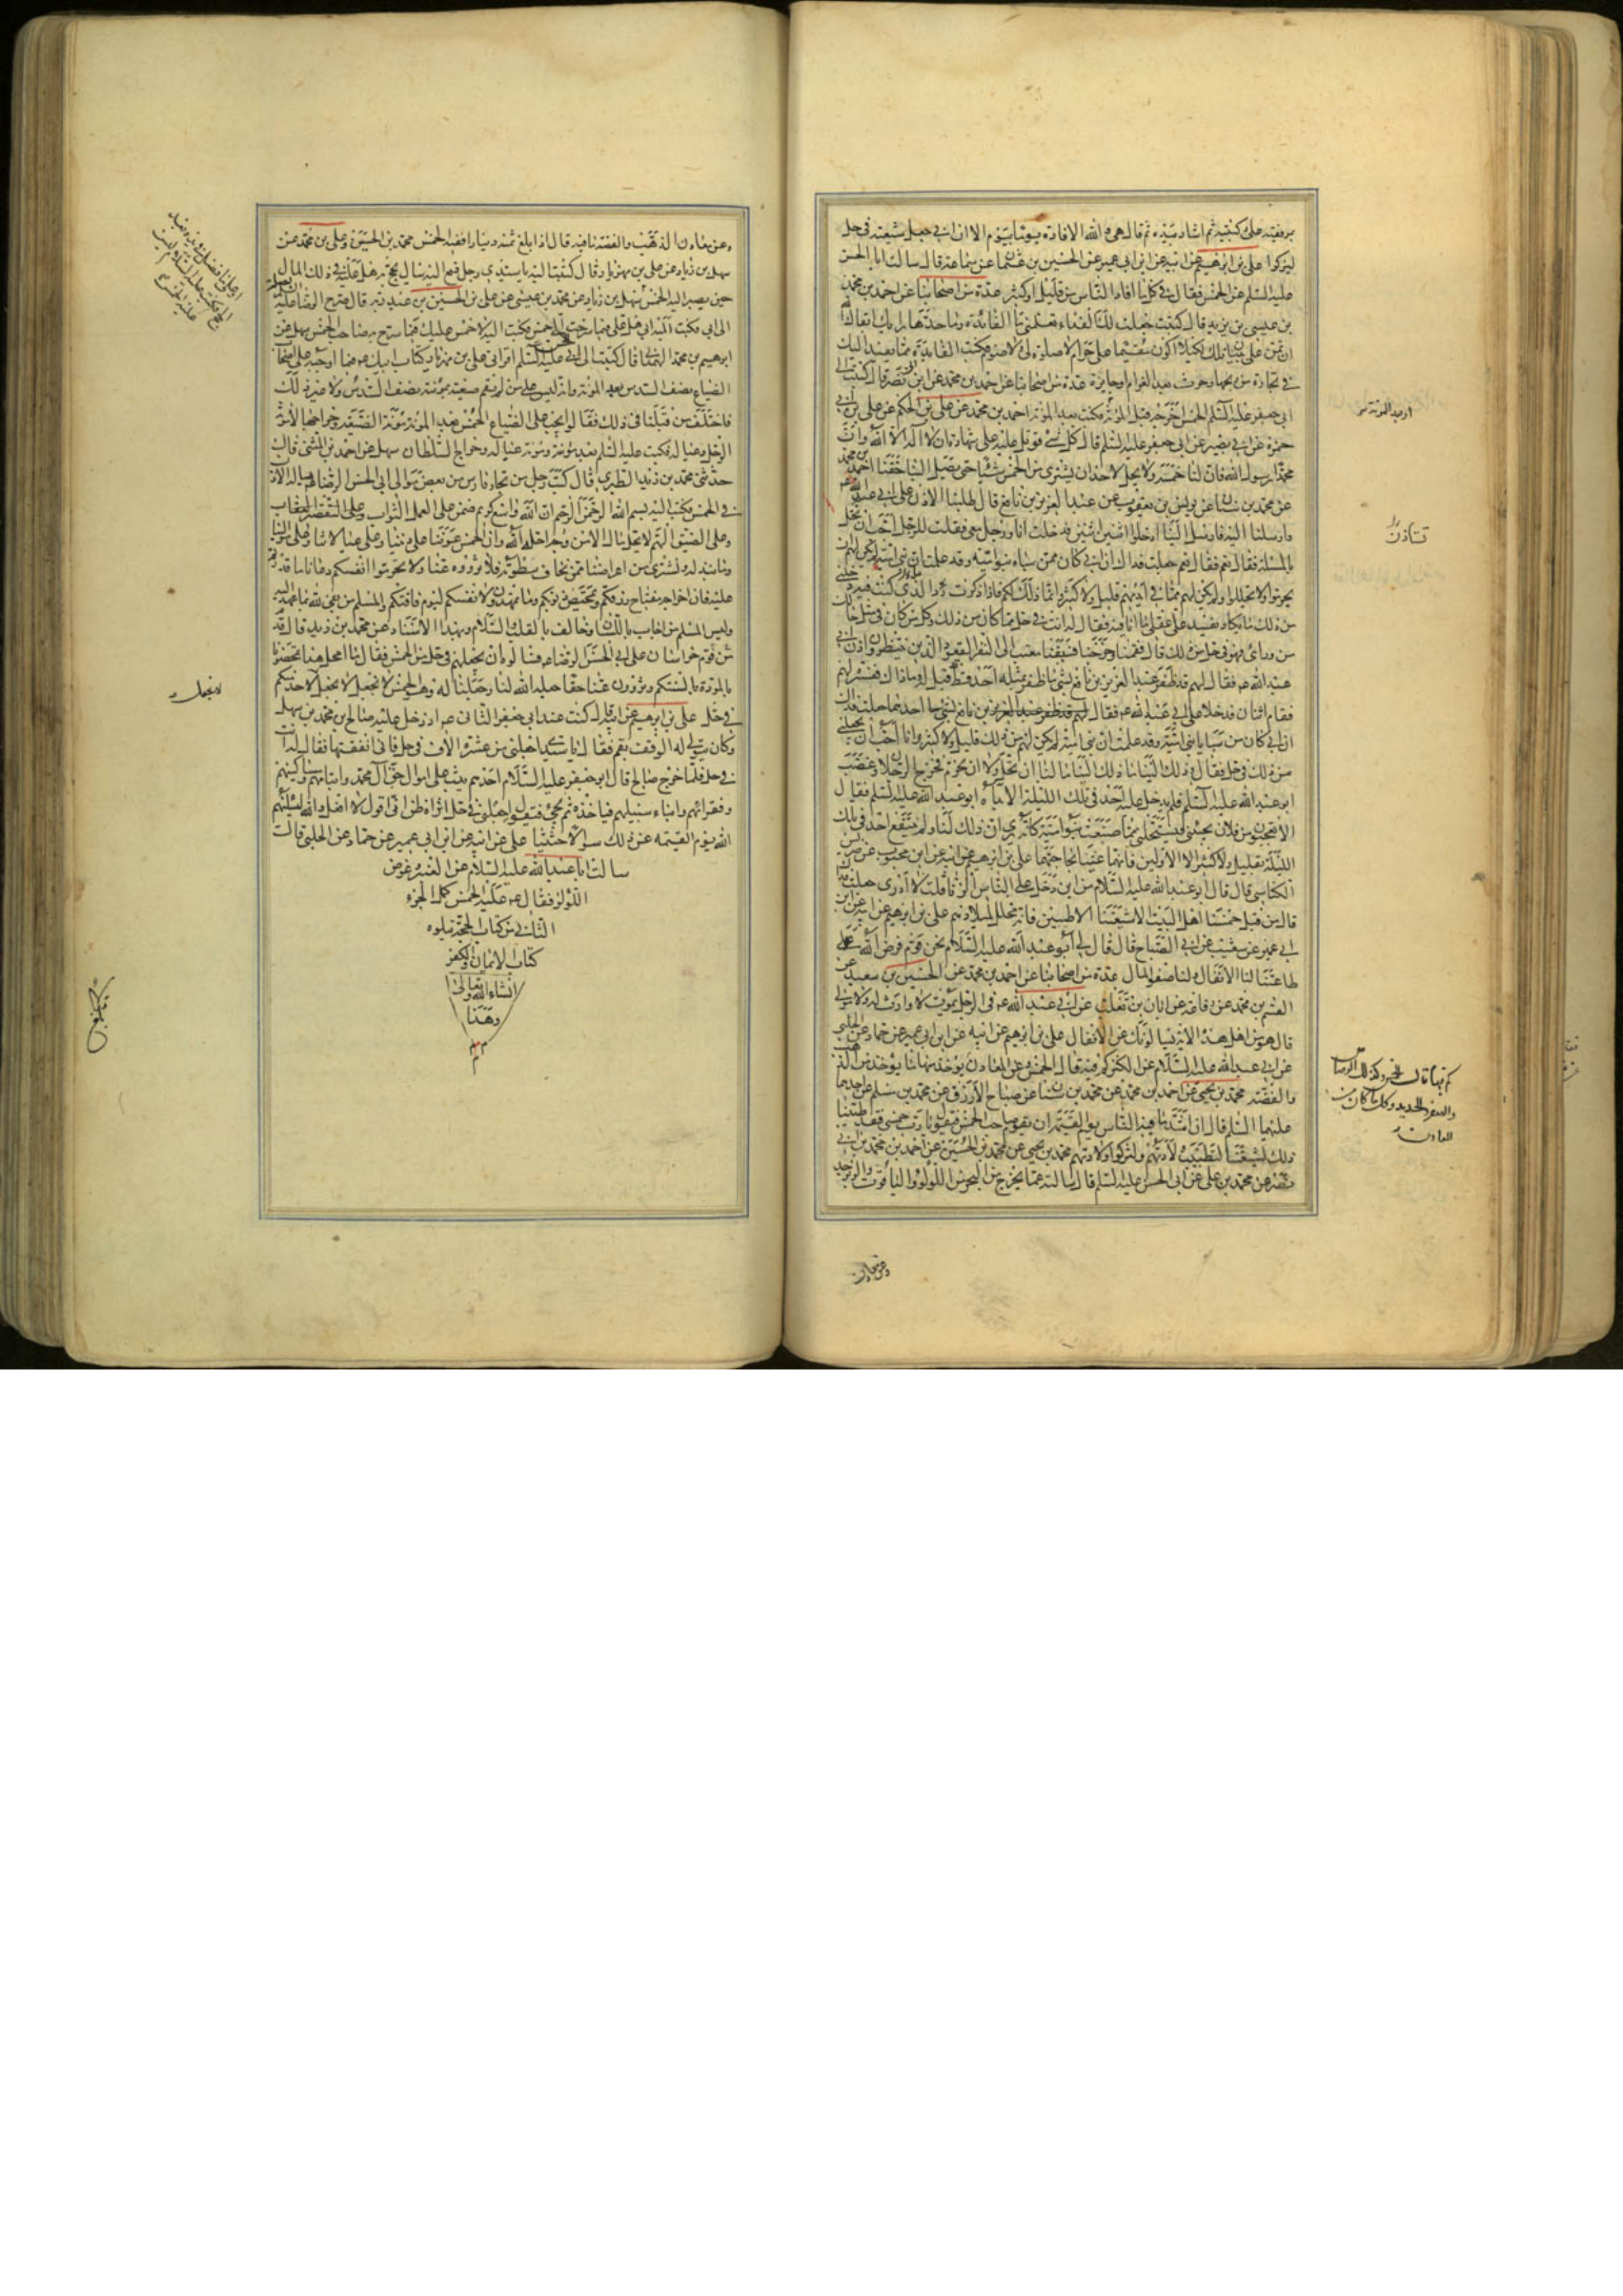 بمرفقيه على ركبتيه ثم اشار بيده ثم قال هي والله الافادة يوما بيوم الا ان ابي جعل شيعته في حل
ليزكوا علي بن ابرهيم عن ابيه عن ابن ابي عمير عن الحسين بن عثمان عن سماعة قال سالت ابا الحسن
عليه السلم عن الخمس فقال في كل ما افاد الناس من قليل او كثير عدة من اصحابنا عن احمد بن محمد
بن عيسى بن يزيد قال كتبت جعلت لك الفداء تعلمني ما الفائدة وما حدها رايك ابقاك الله
ان تمن علي ببيان ذلك لكيلا اكون مقيما على حرام لا صلوة لي ولا صوم فكتب الفايدة مما يفيد اليك
في تجارة من ربحها وحرث بعد الغرام او جايزة عدة من اصحابنا عن احمد بن محمد عن ابن ابي نصر قال كتبت الى
ابي جعفر عليه السلم الخمس اخرجه قبل المؤنة او بعد المؤنة فكتب بعد المؤنة احمد بن محمد عن علي بن الحكم عن علي بن ابي
حمزة عن ابي بصير عن ابي جعفر عليه السلم قال كل شيء قوتل عليه على شهادة ان لا اله الا الله وان
محمدا رسول الله فان لنا خمسه ولا يحل لاحد ان يشتري من الخمس شيئا حتى يصل الينا حقنا احمد بن محمد
عن محمد بن سنان عن يونس بن يعقوب عن عبد العزيز بن نافع قال طلبنا الاذن على ابي عبد الله عم
وارسلنا اليه فارسل الينا ادخلوا اثنين اثنين فدخلت انا ورجل معي فقلت للرجل احب ان تحل
بالمسئلة فقال نعم فقال له جعلت فداك ان ابي كان ممن سباه بنو امية وقد علمت ان بني امية لم يكن لهم ان
يحرموا ولا يحللوا ولم يكن لهم مما في ايديهم قليل ولا كثير وانما ذلك لكم فاذا ذكرت رد الذي كنت فيه دخلني
من ذلك ما يكاد يفسد علي عقلي ما انا فيه فقال له انت في حل مما كان من ذلك وكل من كان في مثل حالك
من ورائي فهو في حل من ذلك قال فقمنا وخرجنا فسبقنا معتب الى النفر القعود الذين ينتظرون اذن ابي
عبد الله عم فقال لهم قد ظفر عبد العزيز بن نافع بشي ما ظفر بمثله احد قط قيل له وما ذاك ففسره لهم
فقام اثنان فدخلا على ابي عبد الله عم فقال احدهما جعلت فداك
ان ابي كان من سبايا بني امية وقد علمت ان بني امية لم يكن لهم من ذلك قليل ولا كثير وانا احب ان تجعلني
من ذلك في حل فقال وذلك الينا ما ذلك الينا ما لنا ان نحل ولا ان نحرم فخرج الرجلان وغضب
ابو عبد الله عليه السلم فلم يدخل عليه احد في تلك الليلة الا بداه ابو عبد الله عليه السلم فقال
الا تعجبون من فلان يجيئني فيستحلني مما صنعت بنو امية كانه يرى ان ذلك لنا ولم ينتفع احد في تلك
الليلة بقليل ولا كثير الا الاولين فانهما عنيا بحاجتهما علي بن ابرهيم عن ابيه عن ابن محبوب عن ضريس
الكناسي قال قال ابو عبد الله عليه السلام من اين دخل على الناس الزنا قلت لا ادري جعلت فداك
قال من قبل خمسنا اهل البيت الا شيعتنا الاطيبين فانه محلل لهم لميلادهم علي بن ابرهيم عن ابيه عن ابن
ابي عمير عن شعيب عن ابي الصباح قال قال لي ابو عبد الله عليه السلام نحن قوم فرض الله
طاعتنا لنا الانفال ولنا صفو المال عدة من اصحابنا عن احمد بن محمد عن الحسين بن سعيد عن
القسم بن محمد عن رفاعة عن ابان بن تغلب عن ابي عبد الله عم في الرجل يموت لا وارث له ولا مولى
قال هو من اهل هذه الاية يسالونك عن الانفال علي بن ابرهيم عن ابيه عن ابن ابي عمير عن حماد عن الحلبي
عن ابي عبد الله عليه السلام عن الكنز كم فيه قال الخمس وعن المعادن كم فيها يوخذ منها ما يوخذ من الذهب
والفضة محمد بن يحيى عن احمد بن محمد عن محمد بن سنان عن صباح الازرق عن محمد بن مسلم عن احدهما
عليهما السلم قال ان اشد ما فيه الناس يوم القيمة ان يقوم صاحب الخمس فيقول يا رب خمسي وقد طيبنا
ذلك لشيعتنا لتطيب ولادتهم ولتزكوا ولادتهم محمد بن يحيى عن محمد بن الحسين عن احمد بن محمد بن ابي
نصر عن محمد بن علي عن ابي الحسن عليه السلم قال سالته عما يخرج من البحر من اللؤلؤ والياقوت والزبرجد
او بعد المؤنة
تستاذن
كم فيها قال الخمس وكذلك الرصاص
والصفر والحديد وكل ما كان من
المعادن
وعن معادن
وعن معادن الذهب والفضة ما فيه قال اذا بلغ ثمنه دينارا ففيه الخمس محمد بن الحسين وعلي بن محمد عن
سهل بن زياد عن علي بن مهزيار قال كتبت اليه يا سيدي رجل دفع اليه مال يحج به هل عليه في ذلك المال
حين يصير اليه الخمس سهل بن زياد عن محمد بن عيسى عن علي بن الحسين بن عبد ربه قال سرح الرضا عليه السلم بصلة
الى ابي فكتب اليه ابي هل علي فيما سرحت الي خمس فكتب اليه لا خمس عليك فيما سرح به صاحب الخمس سهل عن
ابرهيم بن محمد الهمداني قال كتبت الى ابي الحسن عليه السلم اقراني علي بن مهزيار كتاب ابيك عم فيما اوجبه على اصحاب
الضياع نصف السدس بعد المؤنة وانه ليس على من لم يقم ضيعته بمؤنته نصف السدس ولا غير ذلك
فاختلف من قبلنا في ذلك فقالوا يجب على الضياع الخمس بعد المؤنة مؤنة الضيعة وخراجها لا مؤنة
الرجل وعياله فكتب عليه السلم بعد مؤنته ومؤنة عياله وخراج السلطان سهل عن احمد بن المثنى قال
حدثني محمد بن زيد الطبري قال كتب رجل من تجار فارس من بعض موالي ابي الحسن الرضا عم يساله الاذن
في الخمس فكتب اليه بسم الله الرحمن الرحيم ان الله واسع كريم ضمن على العمل الثواب وعلى التقصير العقاب
وعلى الضيق الهم لا يحل مال الا من وجه احله الله وان الخمس عوننا على ديننا وعلى عيالاتنا وعلى موالينا
وما نبذله ونشتري من اعراضنا ممن نخاف سطوته فلا تزووه عنا ولا تحرموا انفسكم دعانا ما قدرتم
عليه فان اخراجه مفتاح رزقكم وتمحيص ذنوبكم وما تمهدون لانفسكم ليوم فاقتكم والمسلم من يفي لله بما عهد اليه
وليس المسلم من اجاب باللسان وخالف بالقلب والسلام وبهذا الاسناد عن محمد بن زيد قال قدم
قوم خراسان على ابي الحسن الرضا عم فسالوه ان يجعلهم في حل من الخمس فقال ما امحل هذا تمحضونا
بالمودة بالسنتكم وتزوون عنا حقا جعله الله لنا وجعلنا له وهو الخمس لا نجعل لا نجعل لاحد منكم
في حل علي بن ابرهيم عن ابيه قال كنت عند ابي جعفر الثاني عم اذ دخل عليه صالح بن محمد بن سهل
وكان يتولى له الوقف بقم فقال يا سيدي اجعلني من عشرة الاف في حل فاني انفقتها فقال له انت
في حل فلما خرج صالح قال ابو جعفر عليه السلام احدهم يثب على اموال حق ال محمد وايتامهم ومساكينهم
وفقرائهم وابناء سبيلهم فياخذه ثم يجيء فيقول اجعلني في حل اتراه ظن اني اقول لا افعل والله ليسئلنهم
الله يوم القيمة عن ذلك سوالا حثيثا علي عن ابيه عن ابن ابي عمير عن حماد عن الحلبي قال
سالت ابا عبد الله عليه السلام عن العنبر وغوص
اللؤلؤ فقال عم عليه الخمس كمل الجزء
الثاني من كتاب الحجة يتلوه
كتاب الايمان والكفر
انشاء الله تعالى
وهذا
لا نجعل